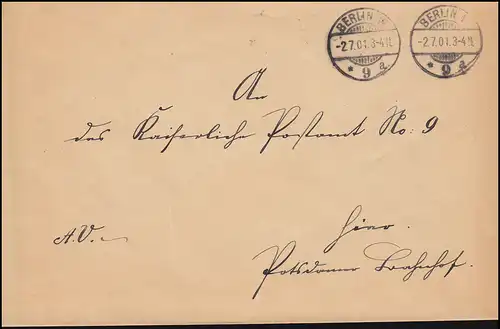 BERLIN W
-2.7.01.3-4N.
* 9 a
BERLIN W
-2.7.01.3-4N.
* 9 a
An
das Kaiserliche Postamt No: 9
A.V.
Hier.
Potsdamer Bahnhof.